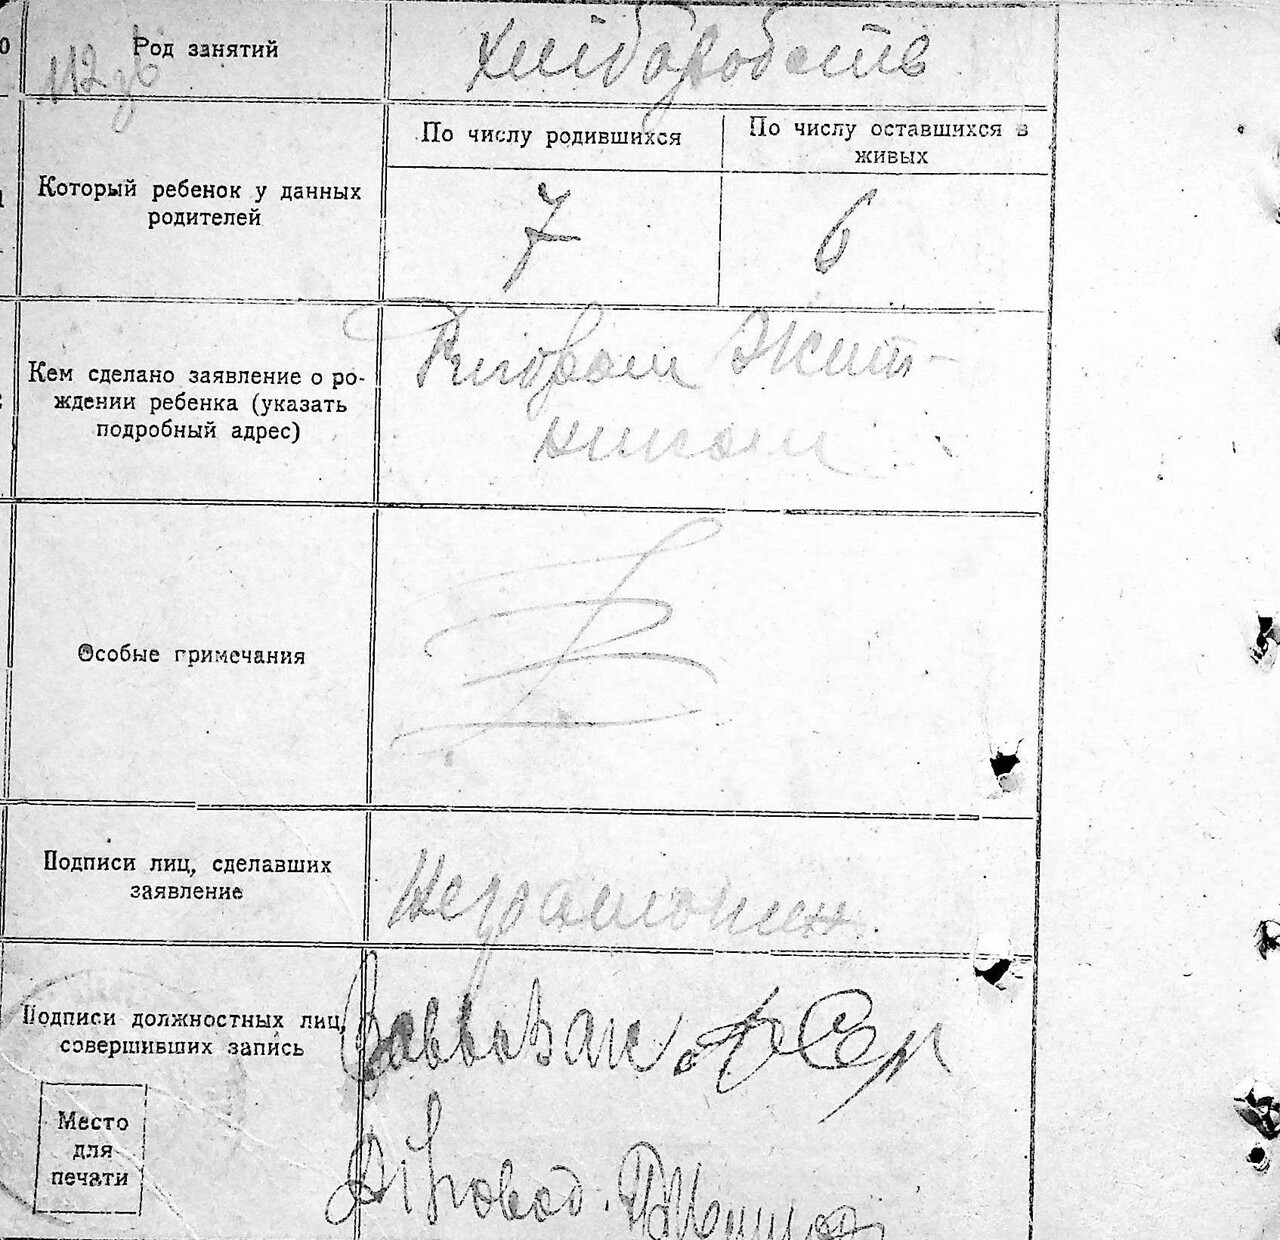 Род занятий
хліборобств
112 зв
По числу родившихся
По числу оставшихся в
живых
Который ребенок у данных
родителей
7
6
Кем сделано заявление о ро-
ждении ребенка (указать
подробный адрес)
Григорам Жит-
никам
Особые примечания
Подписи лиц, сделавших
заявление
Неграмотен
Подписи должностных лиц,
совершивших запись
Место
для
печати
Діловод.